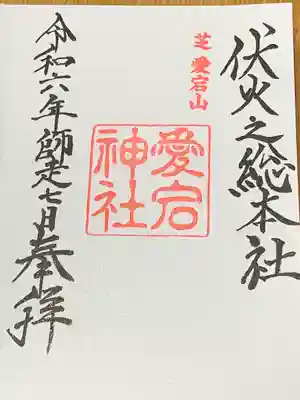 伏火之総本社
芝愛宕山
愛宕
神社
令和六年師走七日奉拝